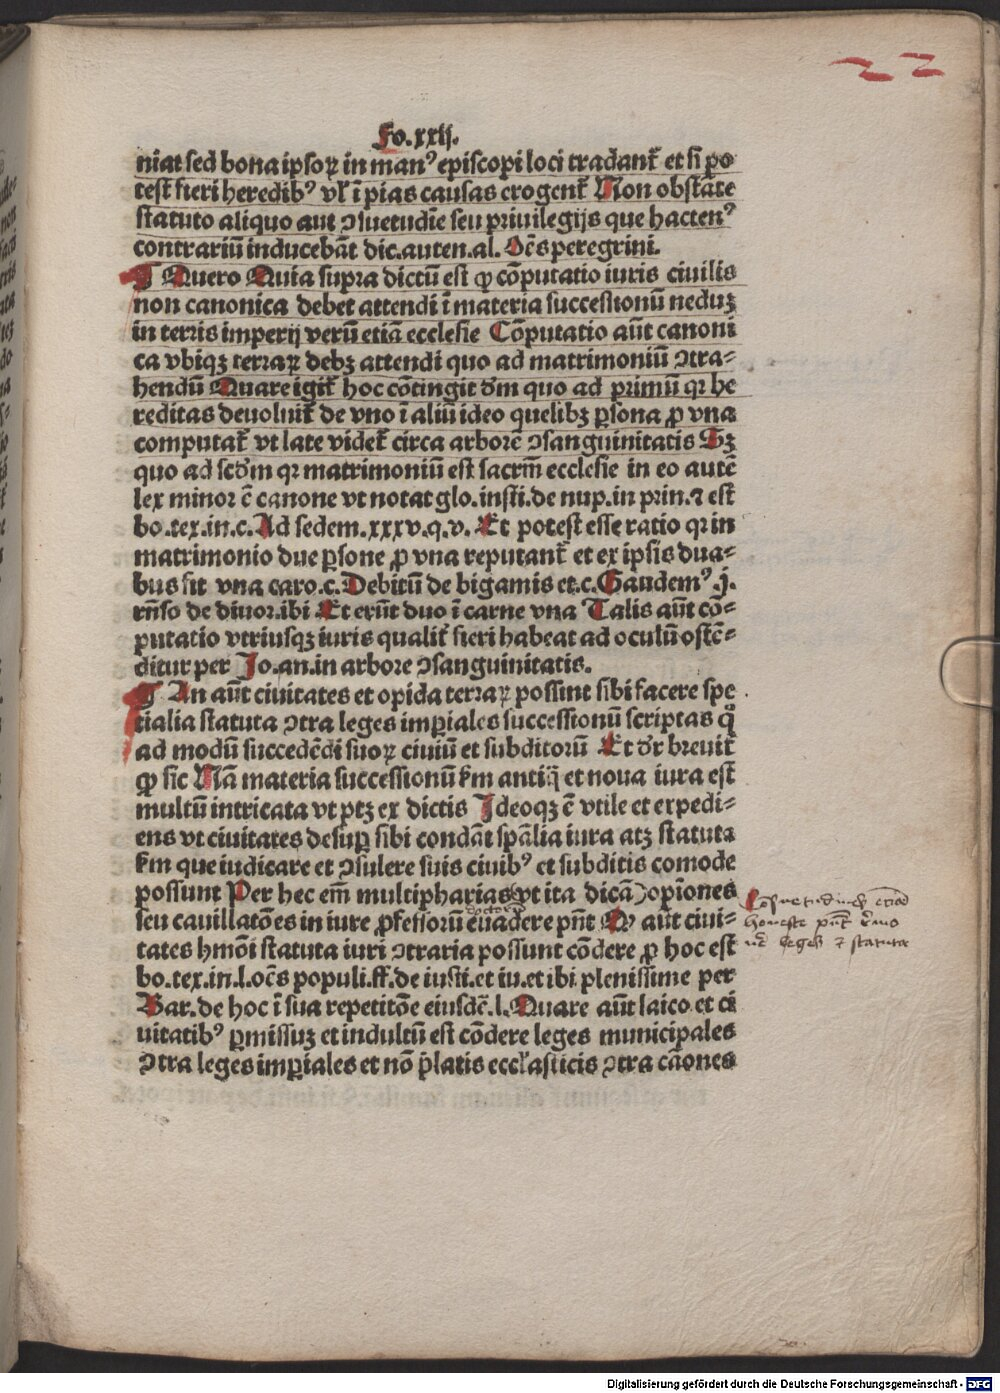 22
Fo.xxij.
niat sed bona ipsoꝝ in man⁹ episcopi loci tradant̄ et si po
test fieri heredib⁹ vl̄ ī pias causas erogent̄ Non obstāte
statuto aliquo aut ↄsuetudīe seu priuilegijs que hacten⁹
contrariū inducebāt dic.auten.al. Oēs peregrini.
¶ Quero Quia supra dictū est ꝙ cōputatio iuris ciuilis
non canonica debet attendi ī materia successionū neduꝫ
in terris imperij verū etiā ecclesie Cōputatio aūt canoni
ca vbiqꝫ terraꝝ debꝫ attendi quo ad matrimoniū ↄtra-
hendū Quare igit̄ hoc cōtingit dm̄ quo ad primū qꝛ he
reditas deuoluit̄ de vno ī aliū ideo quelibꝫ ꝑsona ꝓ vna
computat̄ vt late videt̄ circa arborē ↄsanguinitatis Sꝫ
quo ad scd̄m qꝛ matrimoniū est sacrm̄ ecclesie in eo autē
lex minor ē canone vt notat glo.insti.de nup.in prin.⁊ est
bo.tex.in.c.Ad sedem.xxxv.q.v. Et potest esse ratio qꝛ in
matrimonio due ꝑsone ꝓ vna reputant̄ et ex ipsis dua-
bus sit vna caro.c.Debitū de bigamis et.c.Gaudem⁹.j.
rn̄so de diuor.ibi Et erūt duo ī carne vna Talis aūt cō-
putatio vtriusqꝫ iuris qualit̄ fieri habeat ad oculū ostē-
ditur per Jo.an.in arbore ↄsanguinitatis.
¶ An aūt ciuitates et opida terraꝝ possint sibi facere spe
cialia statuta ↄtra leges imꝑiales successionū scriptas qͦ
ad modū succedēdi suoꝝ ciuiū et subditorū Et dr̄ breuit̄
ꝙ sic Nā materia successionū s̄m antiq̄ et noua iura est
multū intricata vt ptꝫ ex dictis Jdeoqꝫ ē vtile et expedi-
ens vt ciuitates desuꝑ sibi condāt spālia iura atꝫ statuta
s̄m que iudicare et ↄsulere suis ciuib⁹ et subditis comode
possunt Per hec em̄ multipharias (vt ita dicā) opiniones
doctorum
seu cauillatōes in iure ꝓfessorū euadere pn̄t Qꝙ aūt ciui-
tates hmōi statuta iuri ↄtraria possunt cōdere ꝓ hoc est
bo.tex.in.l.oēs populi.ff.de iusti.et iu.et ibi plenissime per
Bar.de hoc ī sua repetitōe eiusdē.l.Quare aūt laico et ci
uitatib⁹ ꝑmissuꝫ et indultū est cōdere leges municipales
ↄtra leges imꝑiales et nō p̄latis eccl̄asticis ↄtra cāones
leges ⁊ statuta
Digitalisierung gefördert durch die Deutsche Forschungsgemeinschaft - DFG